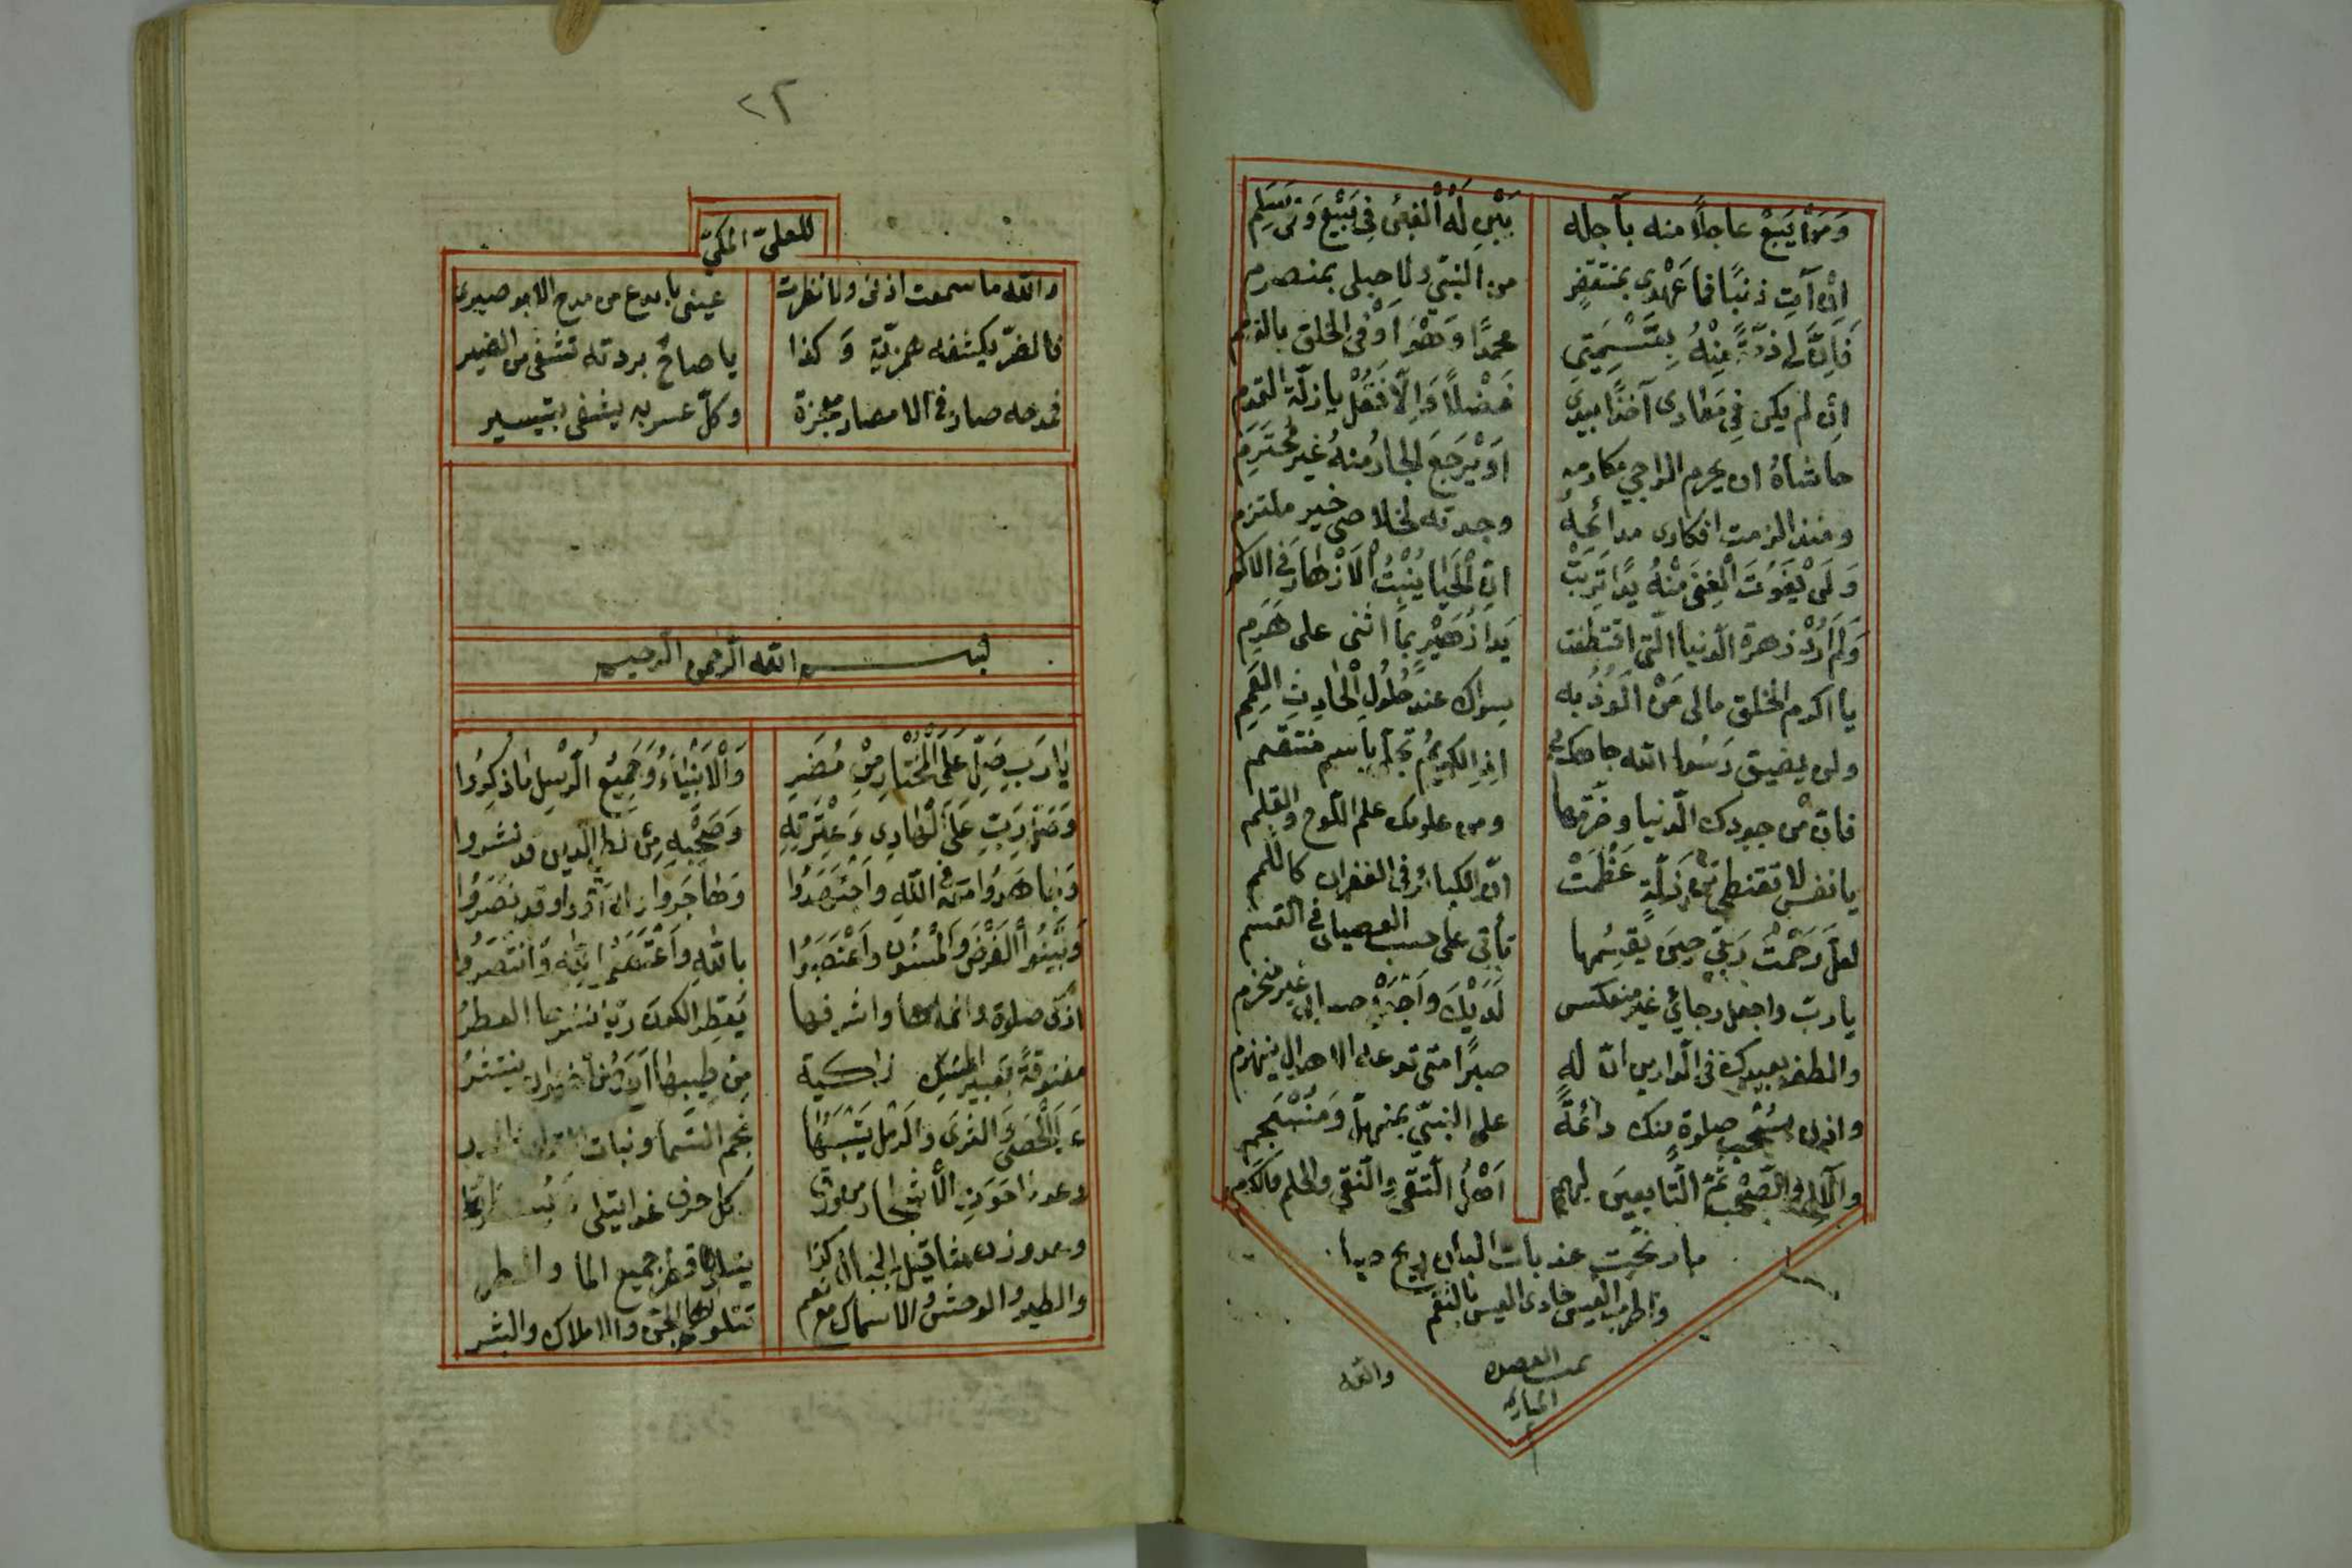 وَمَنْ يَبِعْ عاجلاً منه بآجله بَيْنِ لَهُ الْغَبْنُ فِي بَيْعٍ وَفِي سَلَمِ
اِنْ آتِ ذنبًا فما عَهْدِي بمنتقض من النبيّ ولا حبلى بمنصرم
فَاِنَّ لِي ذِمَّةً مِنْهُ بِتَسْمِيَتِي محمدًا وَهْوَ اَوْفَى الخلق بالذمم
اِنْ لم يكن فِي مَعَادِى آخذًا بيدى فَضْلاً وَاِلَّا فَقُلْ يا زلّة القدم
حاشاهُ ان يحرم الراجي مكارمه اَوْ يَرْجِعَ الجارُ منهُ غيرَ مُحْتَرَمِ
ومنذ الزمت افكارى مدائحهُ وجدته لخلاصى خير ملتزم
وَلَنْ يَفُوتَ الْغِنَى مِنْهُ يدًا تَرِبَتْ اِنَّ الْحَيَا يُنْبِتُ الْاَزْهَارَ فِي الاكم
وَلَمْ اُرِدْ زهرة الدنيا الّتى اقتطفت يَدَا زُهَيْرٍ بما اثنى على هَرِمِ
يا اكرم الخلق مالى مَنْ اَلُوذُ به سواك عند حُلُولِ الْحَادِثِ الْعَمِمِ
ولن يضيق رَسُولَ الله جاهك بى اِذِ الكريمُ تجلّى باسم منتقم
فانّ مْن جودك الدّنيا وضَرّتها ومن علومك علم اللّوح والقلم
يا نفس لا تقنطى مِنْ زَلَّةٍ عَظُمَتْ انّ الكبائر فى الغفران كاللّمم
لعلّ رَحْمَتَ رَبِّي حِينَ يَقْسِمُها تأتى على حسب العصيان فى القسم
يا ربّ واجعل رجائي غير منعكس لَدَيْكَ وَاجْعَلْ حسابي غير منخرم
والطف بعبدك فى الدّارين انّ لهُ صبرًا متى تدعه الاهوال ينهزم
وأذن لسُحْبِ صلوةٍ منك دائمةً على النبيّ بمنهلّ وَمُنْسَجِمِ
والآلِ والصَّحْبِ ثمّ التَّابعين لهم اَهْلُ التّقَى والنّقَى والحلم والكرم
ما رنّحت عذبات البان ريح صبا
واطرب العيس حادى العيس بالنغم
تمت القصيدة
المباركة
والله
٢٢
للعلى المكّي
والله ما سمعت اذنى ولا نظرت عينى بابدع من مدح الابوصيرى
فالضرّ يكشفه همزيّة وكذا يا صاحْ بردته تشفى من الضير
فمدحه صار فى الامصار معجزة وكلّ عسر به يشفى بتيسير
بسم الله الرّحمن الرّحيم
يَا رَبِّ صَلِّ عَلَى الْمُخْتَارِ مِنْ مُضَرٍ وَالْاَنْبِيَاءِ وَجَمِيعِ الرُّسْلِ ما ذُكِرُوا
وَصَلِّ رَبِّ عَلَى الْهَادِى وَعِتْرَتِهِ وَصَحْبِهِ مَنْ لطيّ الدين قد نشروا
وَجَاهَدُوا مَعَهُ فى اللهِ وَاجْتَهَدُوا وَهَاجَرُوا وله آوَوا وقد نَصَرُوا
وَبَيَّنُوا الْفَرْضَ وَالْمَسْنُونَ وَاعْتَصَبُوا باللهِ وَاعْتَصَمُوا لِلّهِ وَانْتَصَرُوا
ازكى صلوة وانماها واشرفها يُعَطِّرُ الكونَ ريّا نشرها العطرُ
مفتوقةً بعبير المسك زاكية مِنْ طيبها اَرَجُ الرضوان ينتشرُ
عَدَّ الْحَصَى وَالثرى والرمل يَتْبَعُهَا نجم السّما ونبات
وعدّ ما حوت الأشجار من ورق كل حرف غدا يتلى
وعد وزن مثاقيل الجبال كذا يتلوه قطر جميع الما والمطر
والطير والوحش والاسماك مع نعم تتلوهم الجنّ والاملاك والبشر